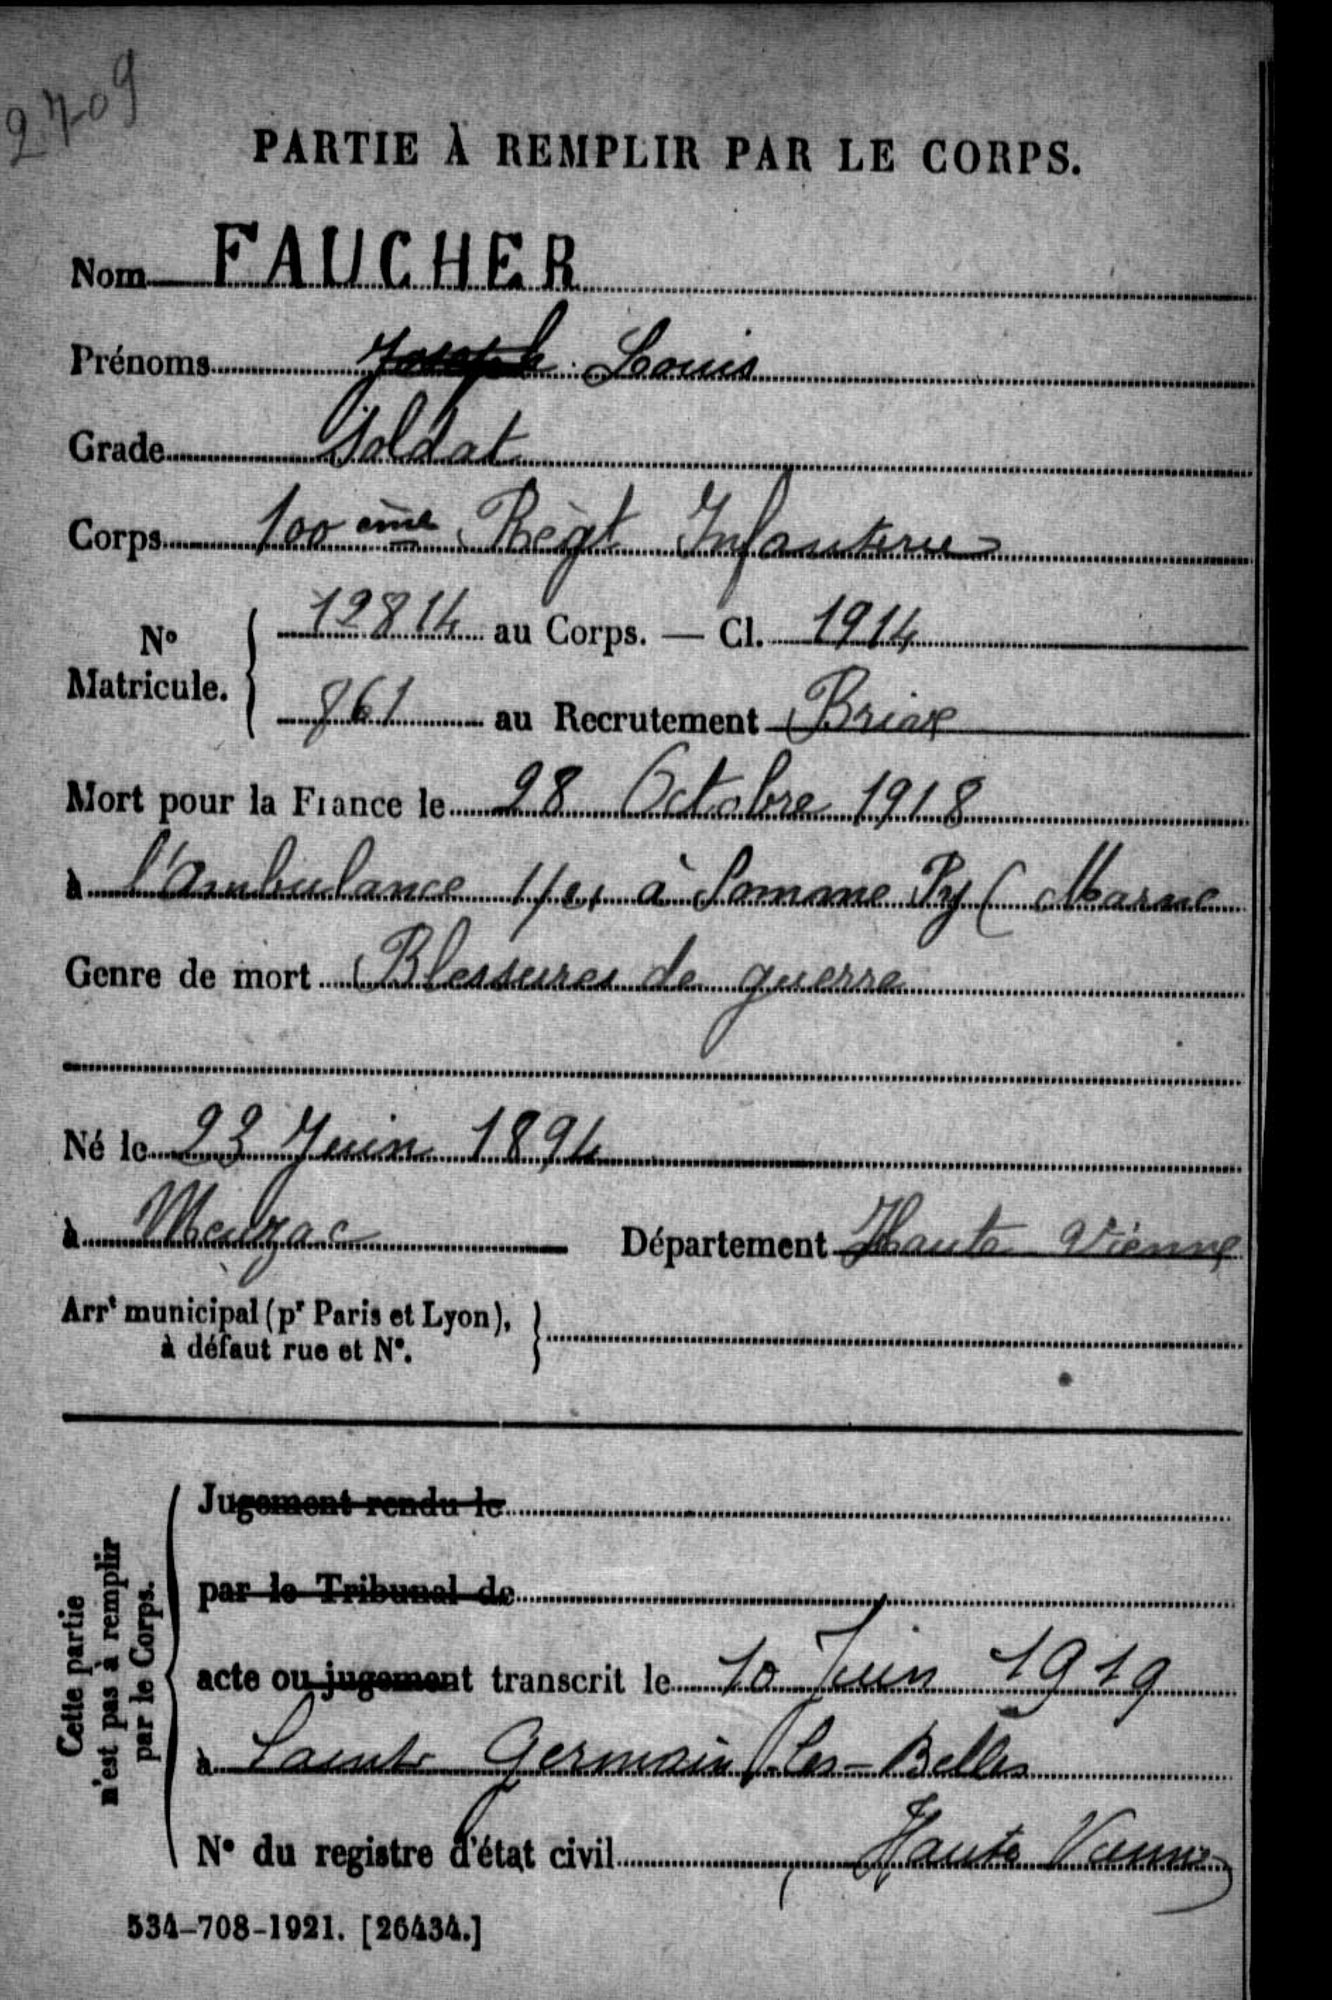 2709
PARTIE À REMPLIR PAR LE CORPS.
Nom FAUCHER
Prénoms Joseph Louis
Grade Soldat
Corps 100 ème Règt Infanterie
N° Matricule. 12814 au Corps. — Cl. 1914
861 au Recrutement Brive
Mort pour la France le 28 Octobre 1918
à l'Ambulance à Somme Py (Marne
Genre de mort Blessures de guerre
Né le 23 Juin 1894
à Meuzac Département Haute Vienne
Arrt municipal (pr Paris et Lyon),
à défaut rue et N°.
Cette partie
n'est pas à remplir
par le Corps.
Jugement rendu le
par le Tribunal de
acte ou jugement transcrit le 10 Juin 1919
à Germain les-Belles
N° du registre d'état civil Haute Vienne
534-708-1921. [26434.]